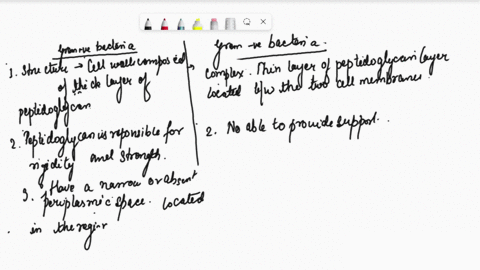 Gram +ve bacteria
1. Structure → Cell wall composed
of thick layer of
peptidoglycan
2. Peptidoglycan is reponsible for
rigidity and strength.
3. Have a narrow or absent
periplasmic space. located
in the regir
Gram -ve bacteria.
complex. Thin layer of peptidoglycan layer
located b/w the two cell membranes
2. No able to provide support.